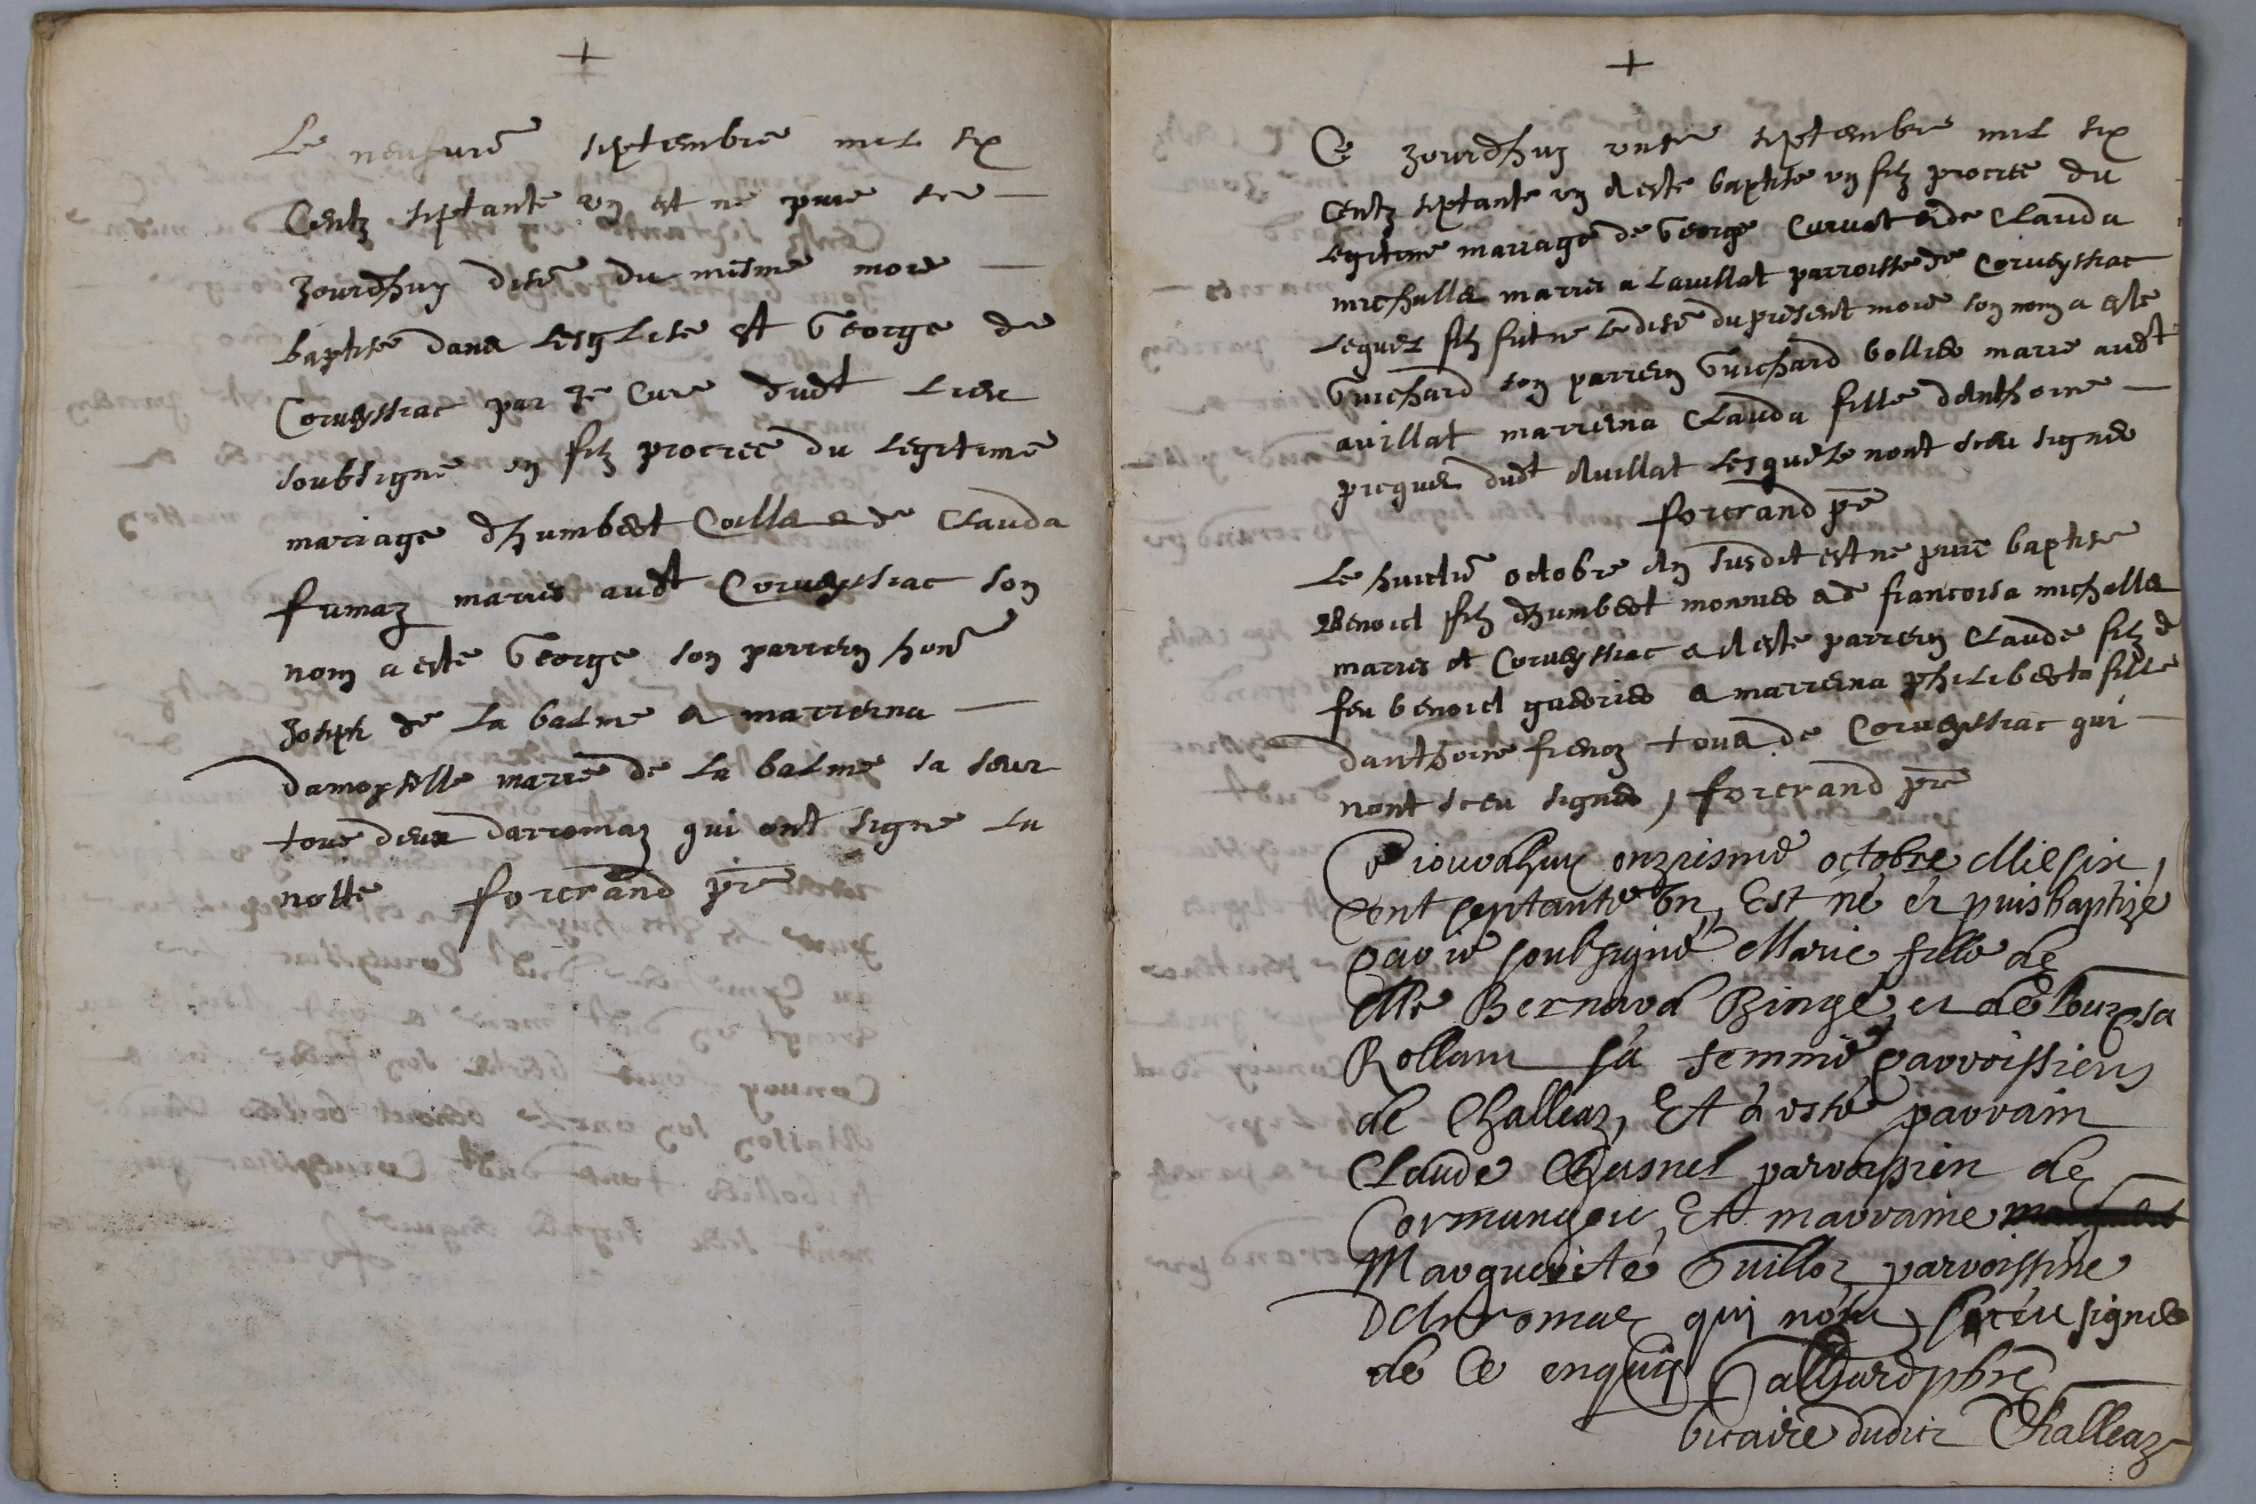 +
Le neufvre septembre mil six
Centz septante un est ne puie ce
Jourdhuy dise du mesme moie
baptise dans lesglise st George de
Corveyssiac par Je Cure dudt lieu
soubsigne un filz procree du legitime
mariage dhumbert Coilla e de Clauda
fumaz maries audt Corveyssiac son
nom a este George son parrein hone
Joseph de la balme & marreina
damoyselle marie de la balme sa seur
tous deux darromaz qui ont signe la
notte forcrand pre
+
Ce Jourdhuy unse septembre mil six
Centz septante un a este baptise un filz procree du
legitime marriage de George Curvat & de Clauda
michalla maries a lavillat parroisse de Corveyssiac
lequel filz fut ne le dise du present moie son nom a este
Guichard son parrein Guichard bollies marie audt
avillat marreina Clauda fille danthoine
picquer dudt Avillat lesquelz nont sceu signes
forcrand pre
Le huictie octobre an susdit est ne puie baptise
Benoict filz dhumbert monnies & de francoisa michalla
maries et Corveyssiac & a este parrein Claude filz de
feu benoict guerries & marreina philiberta fille
danthoine frenoz tous de Corveyssiac qui
nont sceu signes, forcrand pre
Ce iourdhuy onziesme octobre Mil six,
Cent septante un, Est né et puis baptizé
par ie soubsigné Marie fille de
Me Bernard Binge et de Louysa
Rollam sa femme parroissiens
de Challeaz, Et à esté parrain
Claude Chasnel parroissien de
Cormangou, Et marraine
Marguerite Guilloz parroissine
DArromaz qui nont sceu signes
de ce enquis Galliard pbre
vicaire dudict Challeaz